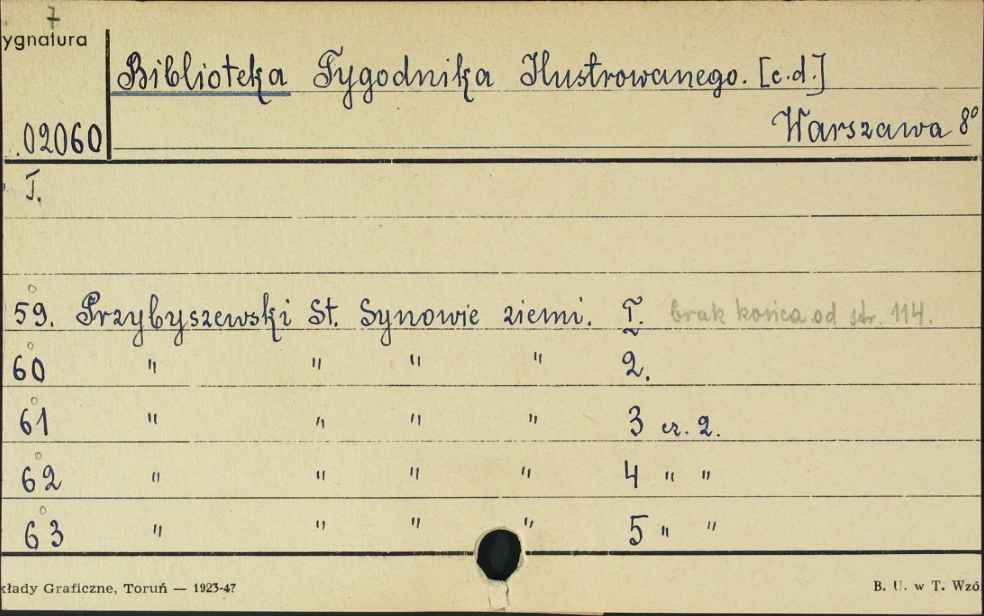 7
ygnatura
Biblioteka Tygodnika Ilustrowanego. [c.d.]
02060
Warszawa 8°
T.
59. Przybyszewski St. Synowie ziemi. T. brak końca od str. 114.
60 " " " " 2.
61 " " " " 3 cz. 2.
62 " " " " 4 " "
63 " " " " 5 " "
kłady Graficzne, Toruń — 1923-47
B. U. w T. Wzó